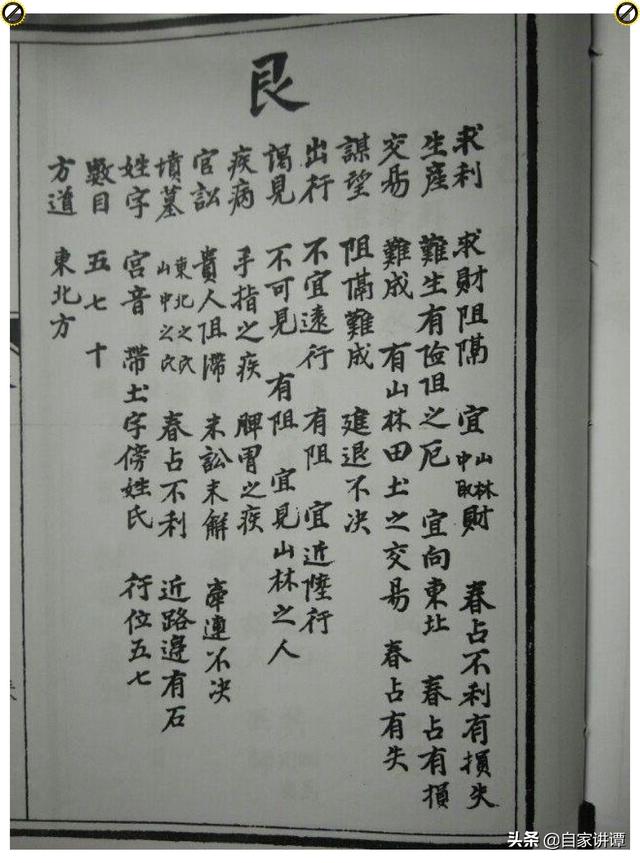 艮
求利 求財阻隔 宜山林中取財 春占不利有損失
生産 難生有險阻之厄 宜向東北 春占有損
交易 難成 有山林田土之交易 春占有失
謀望 阻隔難成 進退不决
出行 不宜遠行 有阻 宜近陸行
謁見 不可見 有阻 宜見山林之人
疾病 手指之疾 脾胃之疾
官訟 貴人阻滯 未訟未解 牽連不决
墳墓 東北之穴 山中之穴 春占不利 近路邊有石
姓字 宮音 帶土字傍姓氏 行位五七
數目 五七十
方道 東北方
头条 @自家讲谭